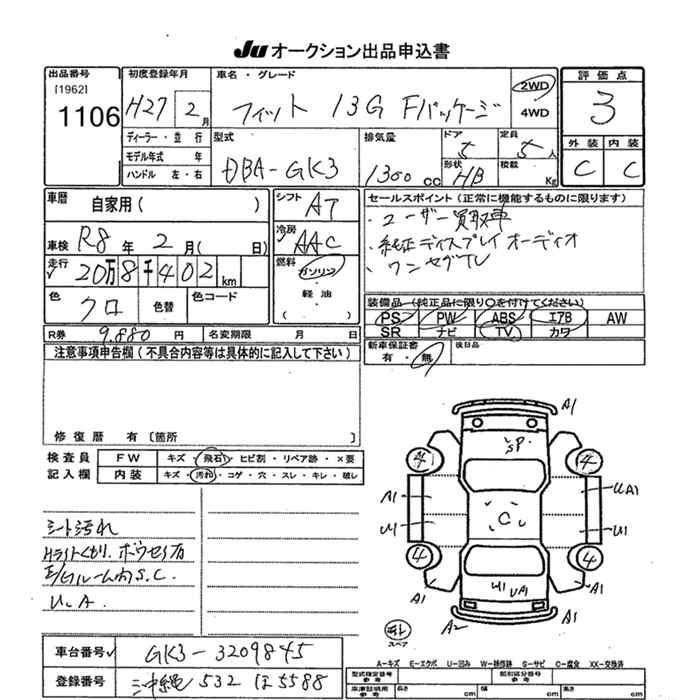 Ju オークション出品申込書
出品番号
[1962]
1106
初度登録年月
H27 2 月
車名・グレード
フィット 13G Fパッケージ
2WD
4WD
評価点
3
ディーラー・並行
モデル年式 年
ハンドル 左・右
型式
DBA-GK3
排気量
1300 cc
ドア
5
形状
HB
定員
5 人
積載
Kg
外装 内装
C C
車歴
自家用( )
シフト
AT
車検 R8 年 2 月( 日)
冷房
AAC
走行
20万8千402 km
燃料
ガソリン
軽油
( )
色
クロ
色替
色コード
R券 9,880 円
名変期限 月 日
セールスポイント(正常に機能するものに限ります)
・ユーザー買取車
・純正ディスプレイオーディオ
・ワンセグTV
装備品(純正品に限り○を付けてください)
PS PW ABS エアB AW
SR ナビ TV カワ
新車保証書
有・無
後日品
注意事項申告欄(不具合内容等は具体的に記入して下さい)
修復歴 有〔箇所 〕
検査員
記入欄
FW キズ・飛石・ヒビ割・リペア跡・×要
内装 キズ・汚れ・コゲ・穴・スレ・キレ・破レ
シート汚れ
Hライトくもり、ボウセイ有
E/Gルーム内S.C.
U.A.
A1
SP
4 4
A1 UA1
C
U1 U1
4 4
U1 UA1
A1 A1
A2 A1
スペア
車台番号 GK3-3209845
登録番号 沖縄 532 ほ 5588
A-キズ E-エクボ U-凹み W-補修跡 S-サビ C-腐食 XX-交換済
型式指定番号
参考
類別区分番号
参考
車庫証明用
参考
長さ cm 幅 cm 高さ cm